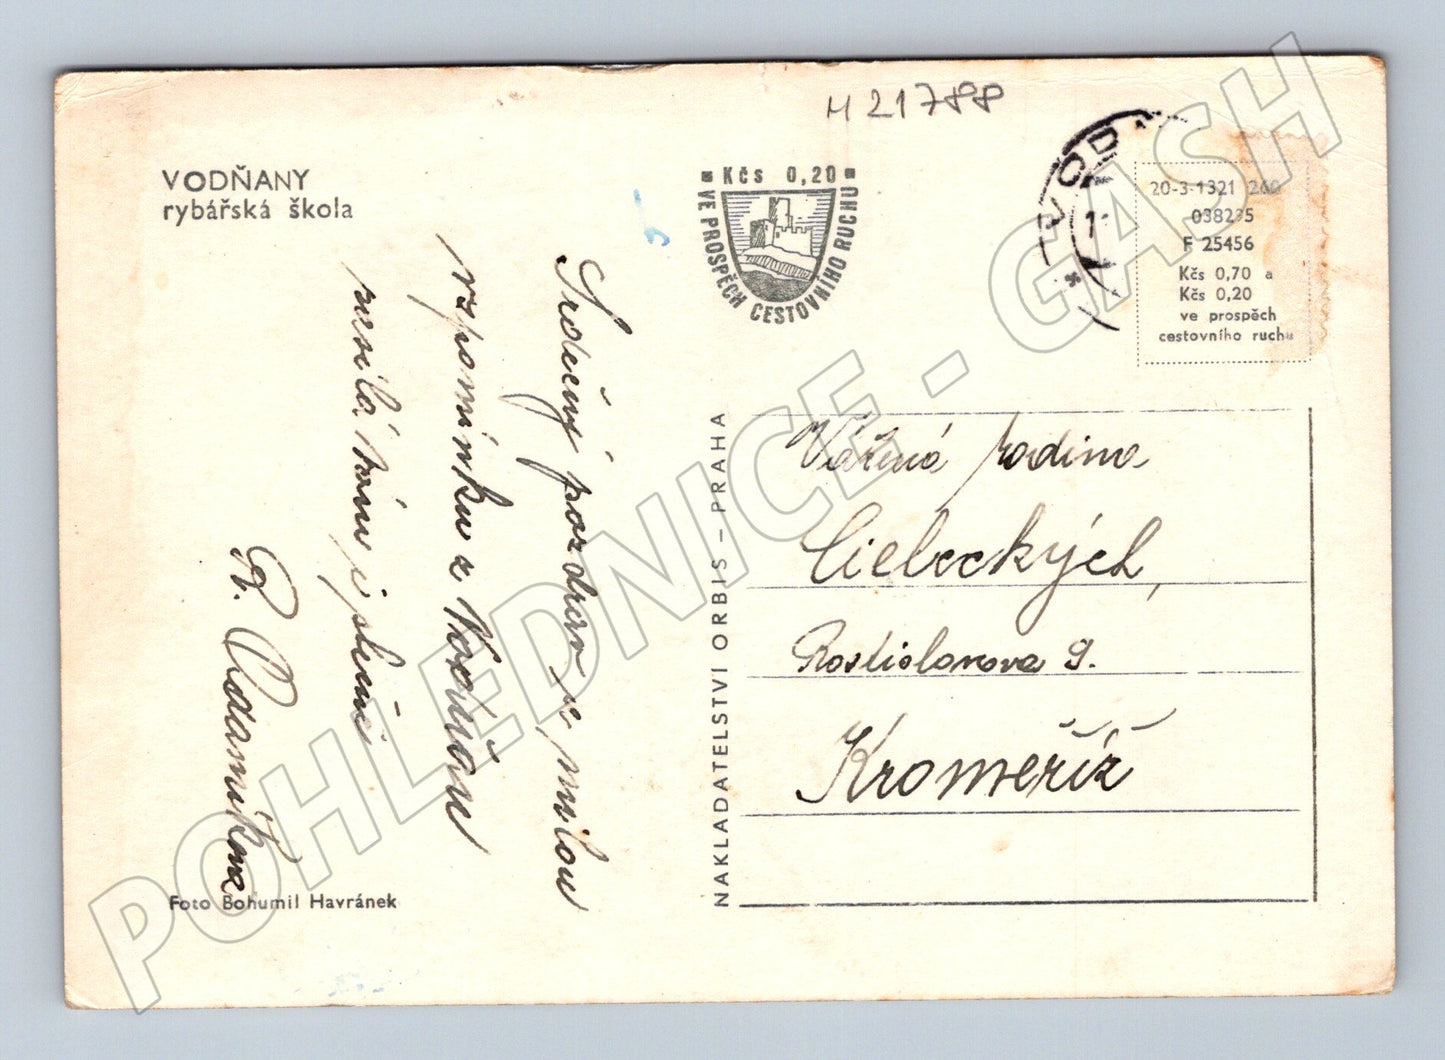 M 21788
VODŇANY
rybářská škola
Kčs 0,20
VE PROSPĚCH CESTOVNÍHO RUCHU
VOD
20-3-1321 260
038235
F 25456
Kčs 0,70 a
Kčs 0,20
ve prospěch
cestovního ruchu
Srdečný pozdrav s milou
vzpomínkou z Vodňan
posílá Vám i
Adamíkova
NAKLADATELSTVÍ ORBIS – PRAHA
Vážená rodina
Cieleckých,
Rostislavova 9.
Kroměříž
Foto Bohumil Havránek
POHLEDNICE - GASH